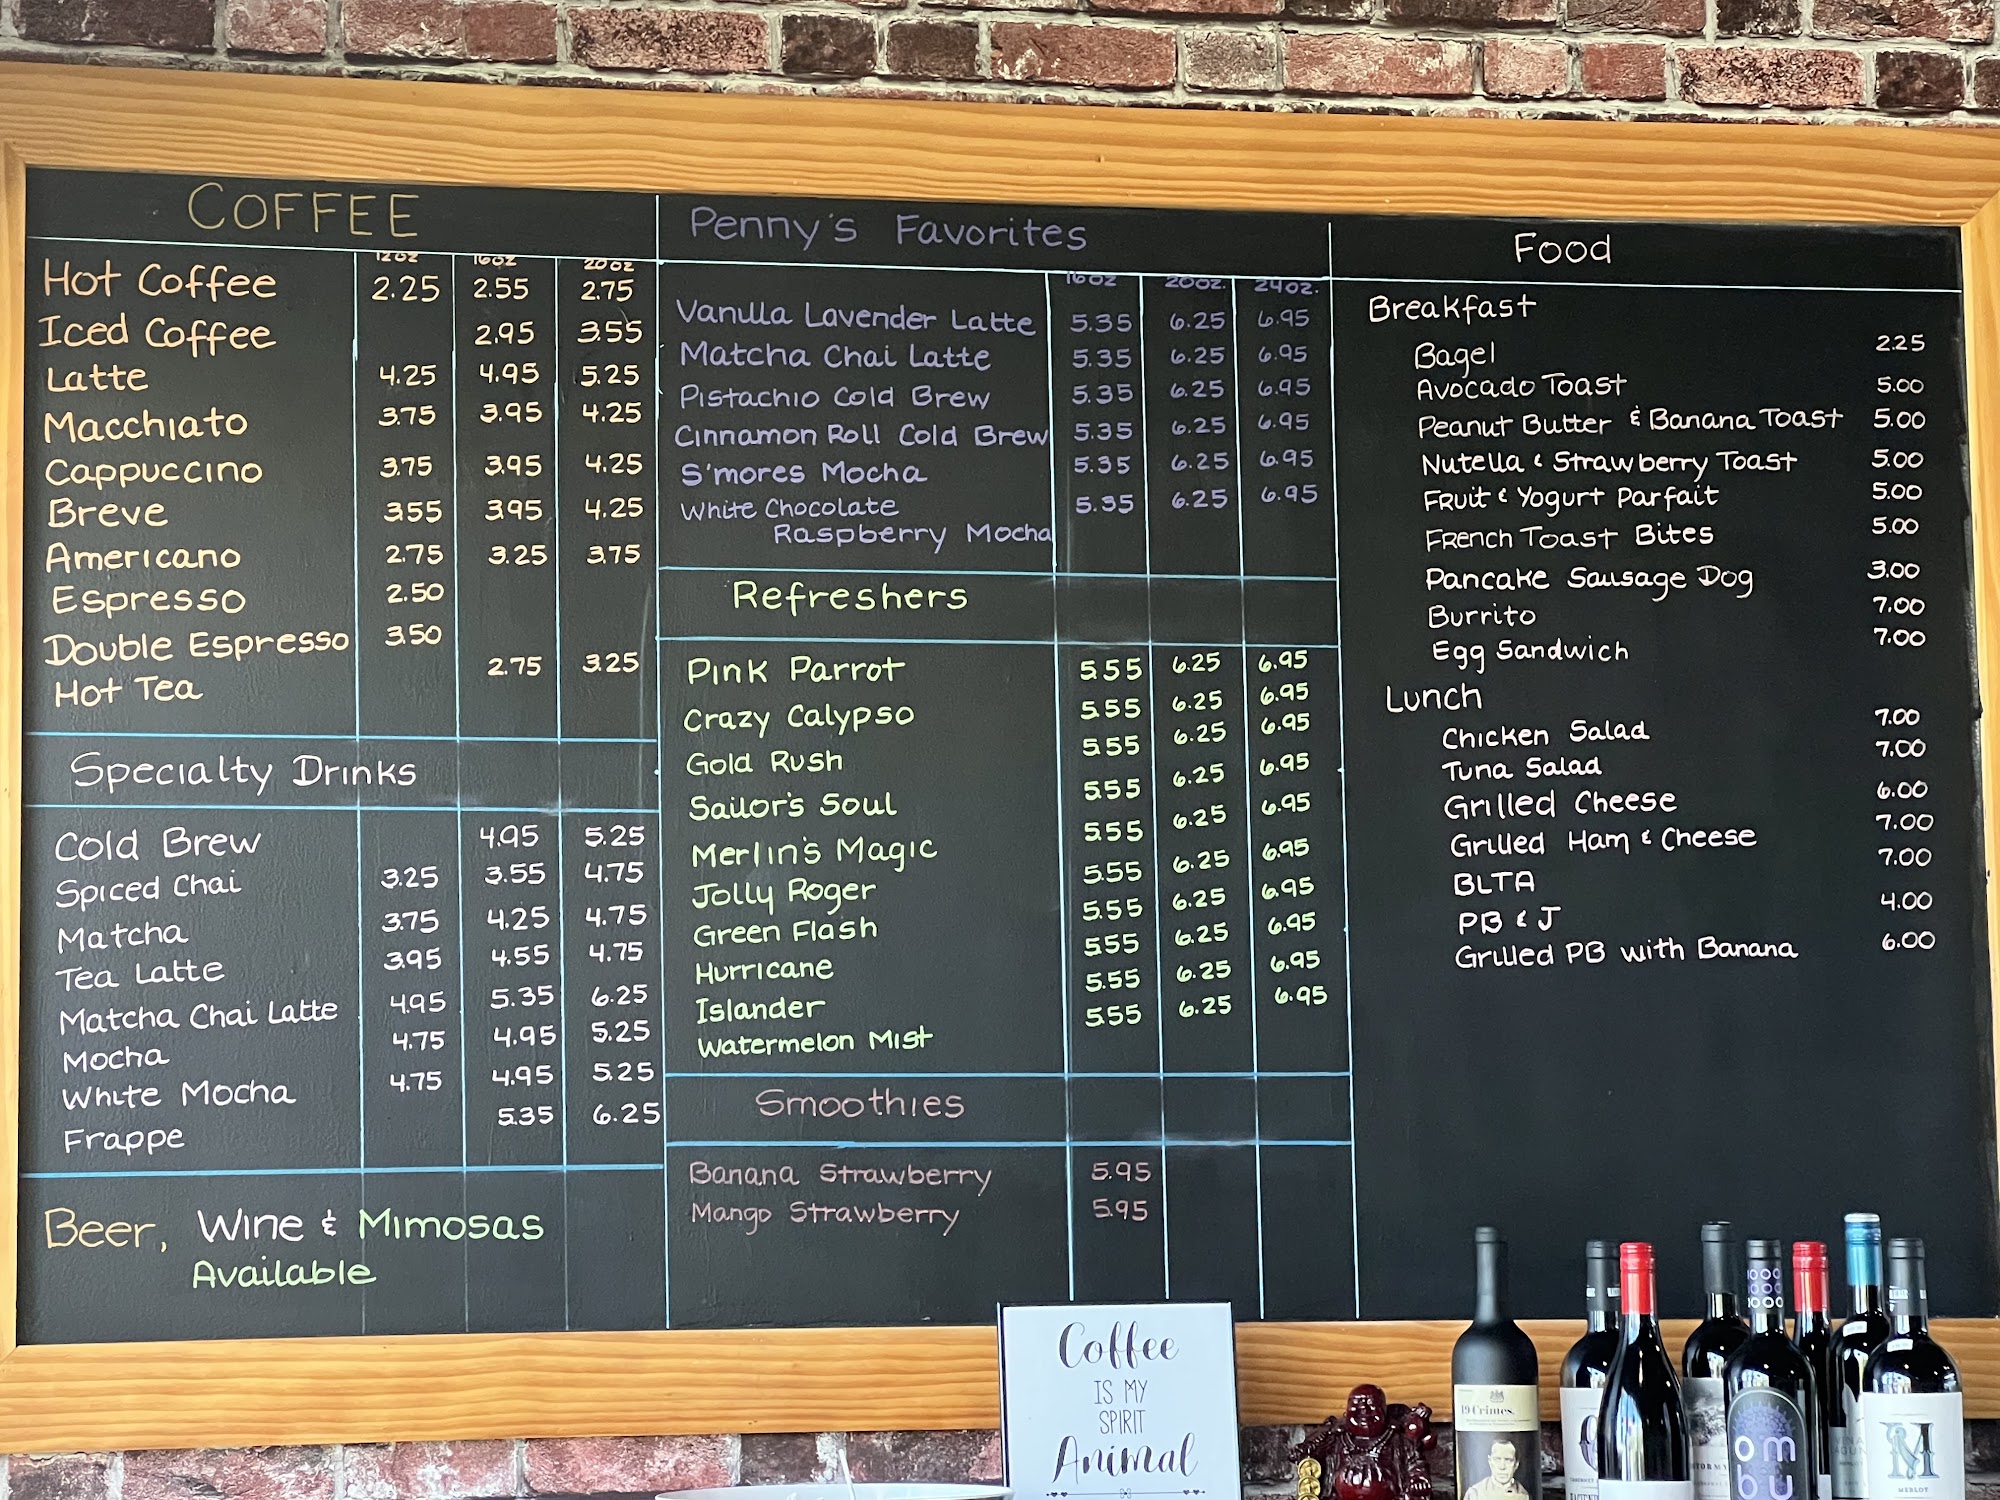 COFFEE
12oz 16oz 20oz
Hot Coffee 2.25 2.55 2.75
Iced Coffee 2.95 3.55
Latte 4.25 4.95 5.25
Macchiato 3.75 3.95 4.25
Cappuccino 3.75 3.95 4.25
Breve 3.55 3.95 4.25
Americano 2.75 3.25 3.75
Espresso 2.50
Double Espresso 3.50
Hot Tea 2.75 3.25
Specialty Drinks
Cold Brew 4.95 5.25
Spiced Chai 3.25 3.55 4.75
Matcha 3.75 4.25 4.75
Tea Latte 3.95 4.55 4.75
Matcha Chai Latte 4.95 5.35 6.25
Mocha 4.75 4.95 5.25
White Mocha 4.75 4.95 5.25
Frappe 5.35 6.25
Beer, Wine & Mimosas
Available
Penny's Favorites
16oz 20oz. 24oz.
Vanilla Lavender Latte 5.35 6.25 6.95
Matcha Chai Latte 5.35 6.25 6.95
Pistachio Cold Brew 5.35 6.25 6.95
Cinnamon Roll Cold Brew 5.35 6.25 6.95
S'mores Mocha 5.35 6.25 6.95
White Chocolate 5.35 6.25 6.95
Raspberry Mocha
Refreshers
Pink Parrot 5.55 6.25 6.95
Crazy Calypso 5.55 6.25 6.95
Gold Rush 5.55 6.25 6.95
Sailor's Soul 5.55 6.25 6.95
Merlin's Magic 5.55 6.25 6.95
Jolly Roger 5.55 6.25 6.95
Green Flash 5.55 6.25 6.95
Hurricane 5.55 6.25 6.95
Islander 5.55 6.25 6.95
Watermelon Mist 5.55 6.25 6.95
Smoothies
Banana Strawberry 5.95
Mango Strawberry 5.95
Food
Breakfast
Bagel 2.25
Avocado Toast 5.00
Peanut Butter & Banana Toast 5.00
Nutella & Strawberry Toast 5.00
Fruit & Yogurt Parfait 5.00
French Toast Bites 5.00
Pancake Sausage Dog 3.00
Burrito 7.00
Egg Sandwich 7.00
Lunch
Chicken Salad 7.00
Tuna Salad 7.00
Grilled Cheese 6.00
Grilled Ham & Cheese 7.00
BLTA 7.00
PB & J 4.00
Grilled PB with Banana 6.00
Coffee
IS MY
SPIRIT
Animal
19 Crimes.
1000
1000
1000
om
bu
M
MERLOT